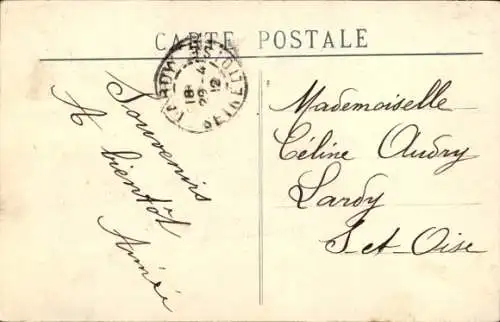 CARTE POSTALE
18 29-4 12
Souvenirs
A bientôt
Aimée
Mademoiselle
Céline Audry
Lardy
S-et-Oise